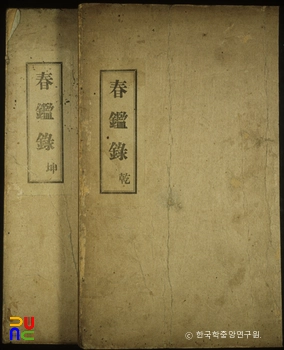 春鑑錄 乾
春鑑錄 坤
© 한국학중앙연구원.